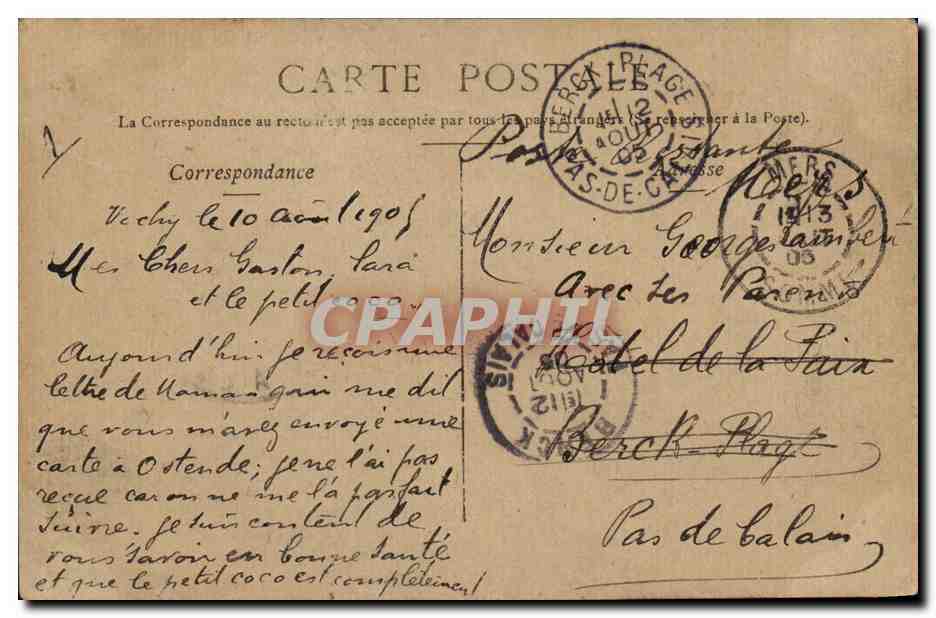 CARTE POSTALE
La Correspondance au recto n'est pas acceptée par tous les pays étrangers (Se renseigner à la Poste).
Correspondance
Vichy le 10 août 1905
Mes Chers Gaston, Sara
et le petit coco
Aujourd'hui je reçois une
lettre de Maman qui me dit
que vous m'avez envoyé une
carte à Ostende; je ne l'ai pas
reçue car on ne me l'a pas fait
suivre. Je suis content de
vous savoir en bonne santé
et que le petit coco est complètement
Adresse
Poste restante
Mers
Monsieur Georges Lambert
avec ses Parents
Hotel de la Paix
Berck-Plage
Pas de Calais
BERCK-PLAGE
12
AOUT
05
PAS-DE-CALAIS
MERS
13
05
SOMME
12
CALAIS
CPAPHIL